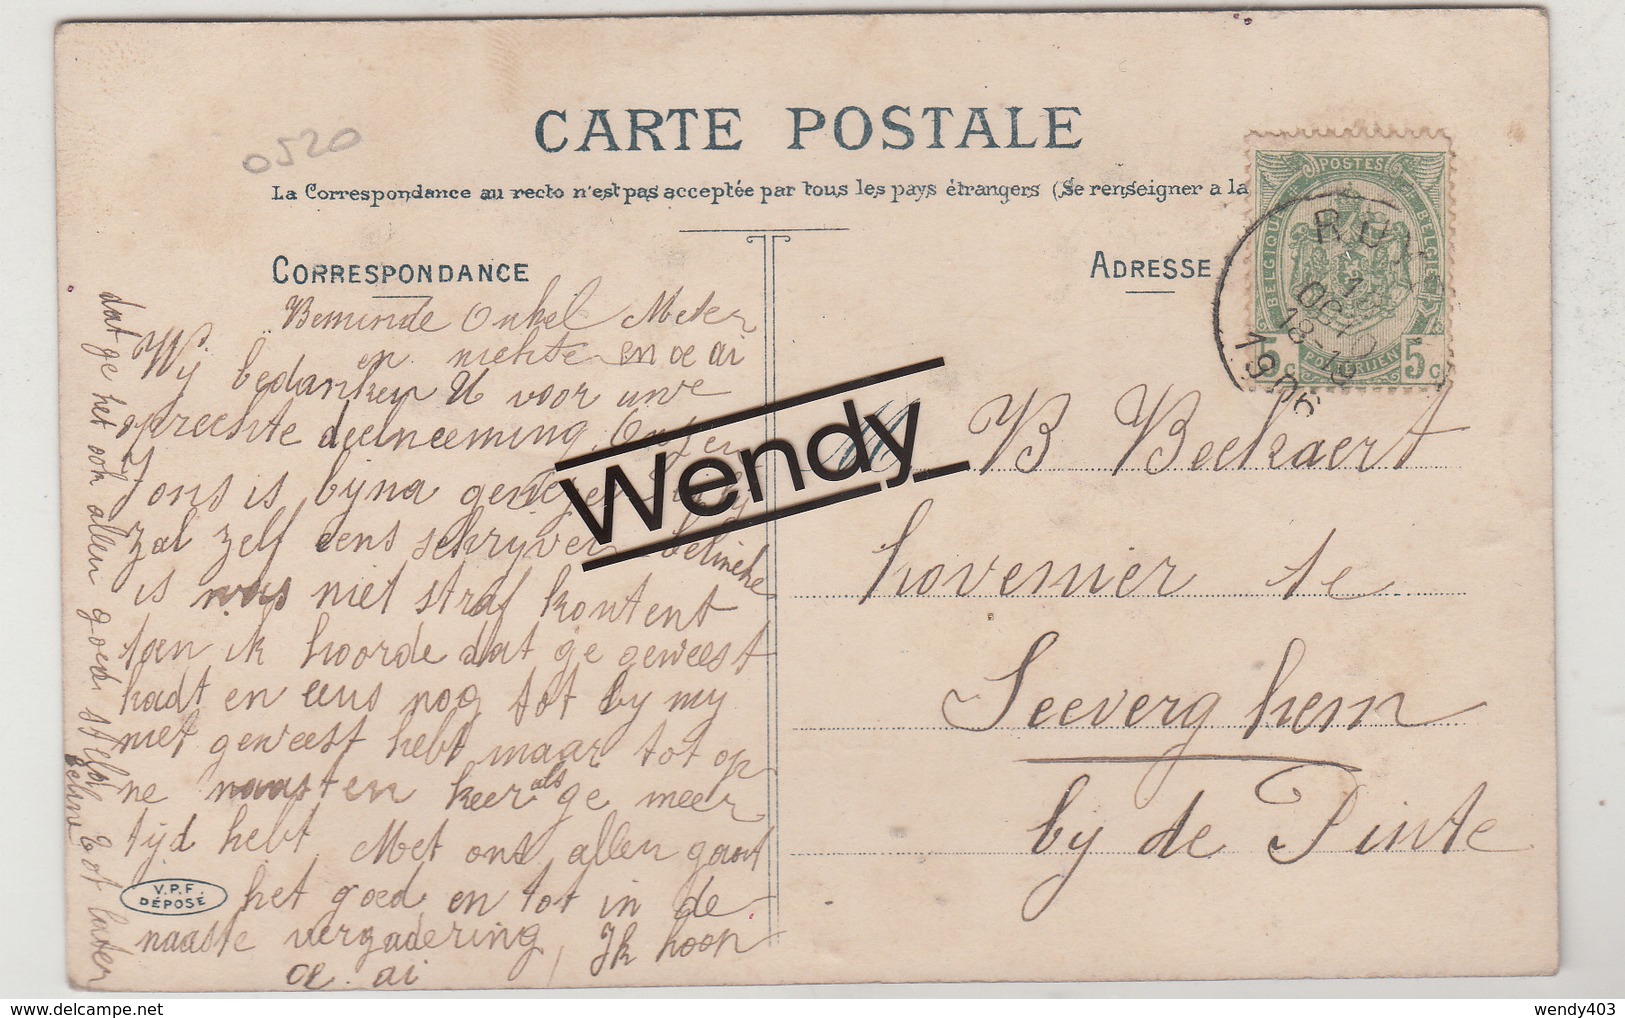 CARTE POSTALE
0520
La Correspondance au recto n'est pas acceptée par tous les pays étrangers (Se renseigner a la
CORRESPONDANCE
Beminde Onkel Meter
en nichte en oe ai
Wij bedanken U voor uwe
opreehte deelneeming
ons is byna geneze
zal zelf eens schryven Celineke
is was niet straf kontent
toen ik hoorde dat ge geweest
hadt en eens nog tot by my
niet geweest hebt maar tot op
ne naasten keer als ge meer
tijd hebt, Met ons allen gaat
het goed en tot in de
naaste vergadering, Ik hoop
oe. ai
dat ge het ook allen goed stelde tot later
Celine
V.P.F.
DÉPOSÉ
ADRESSE
POSTES
BELGIQUE
BELGIE
5 c
POSTERIJEN
5 c
1
OCT
18-19
1906
M B Beekaert
hovenier te
Seeverghem
by de Pinte
Wendy
delcampe.net
wendy403